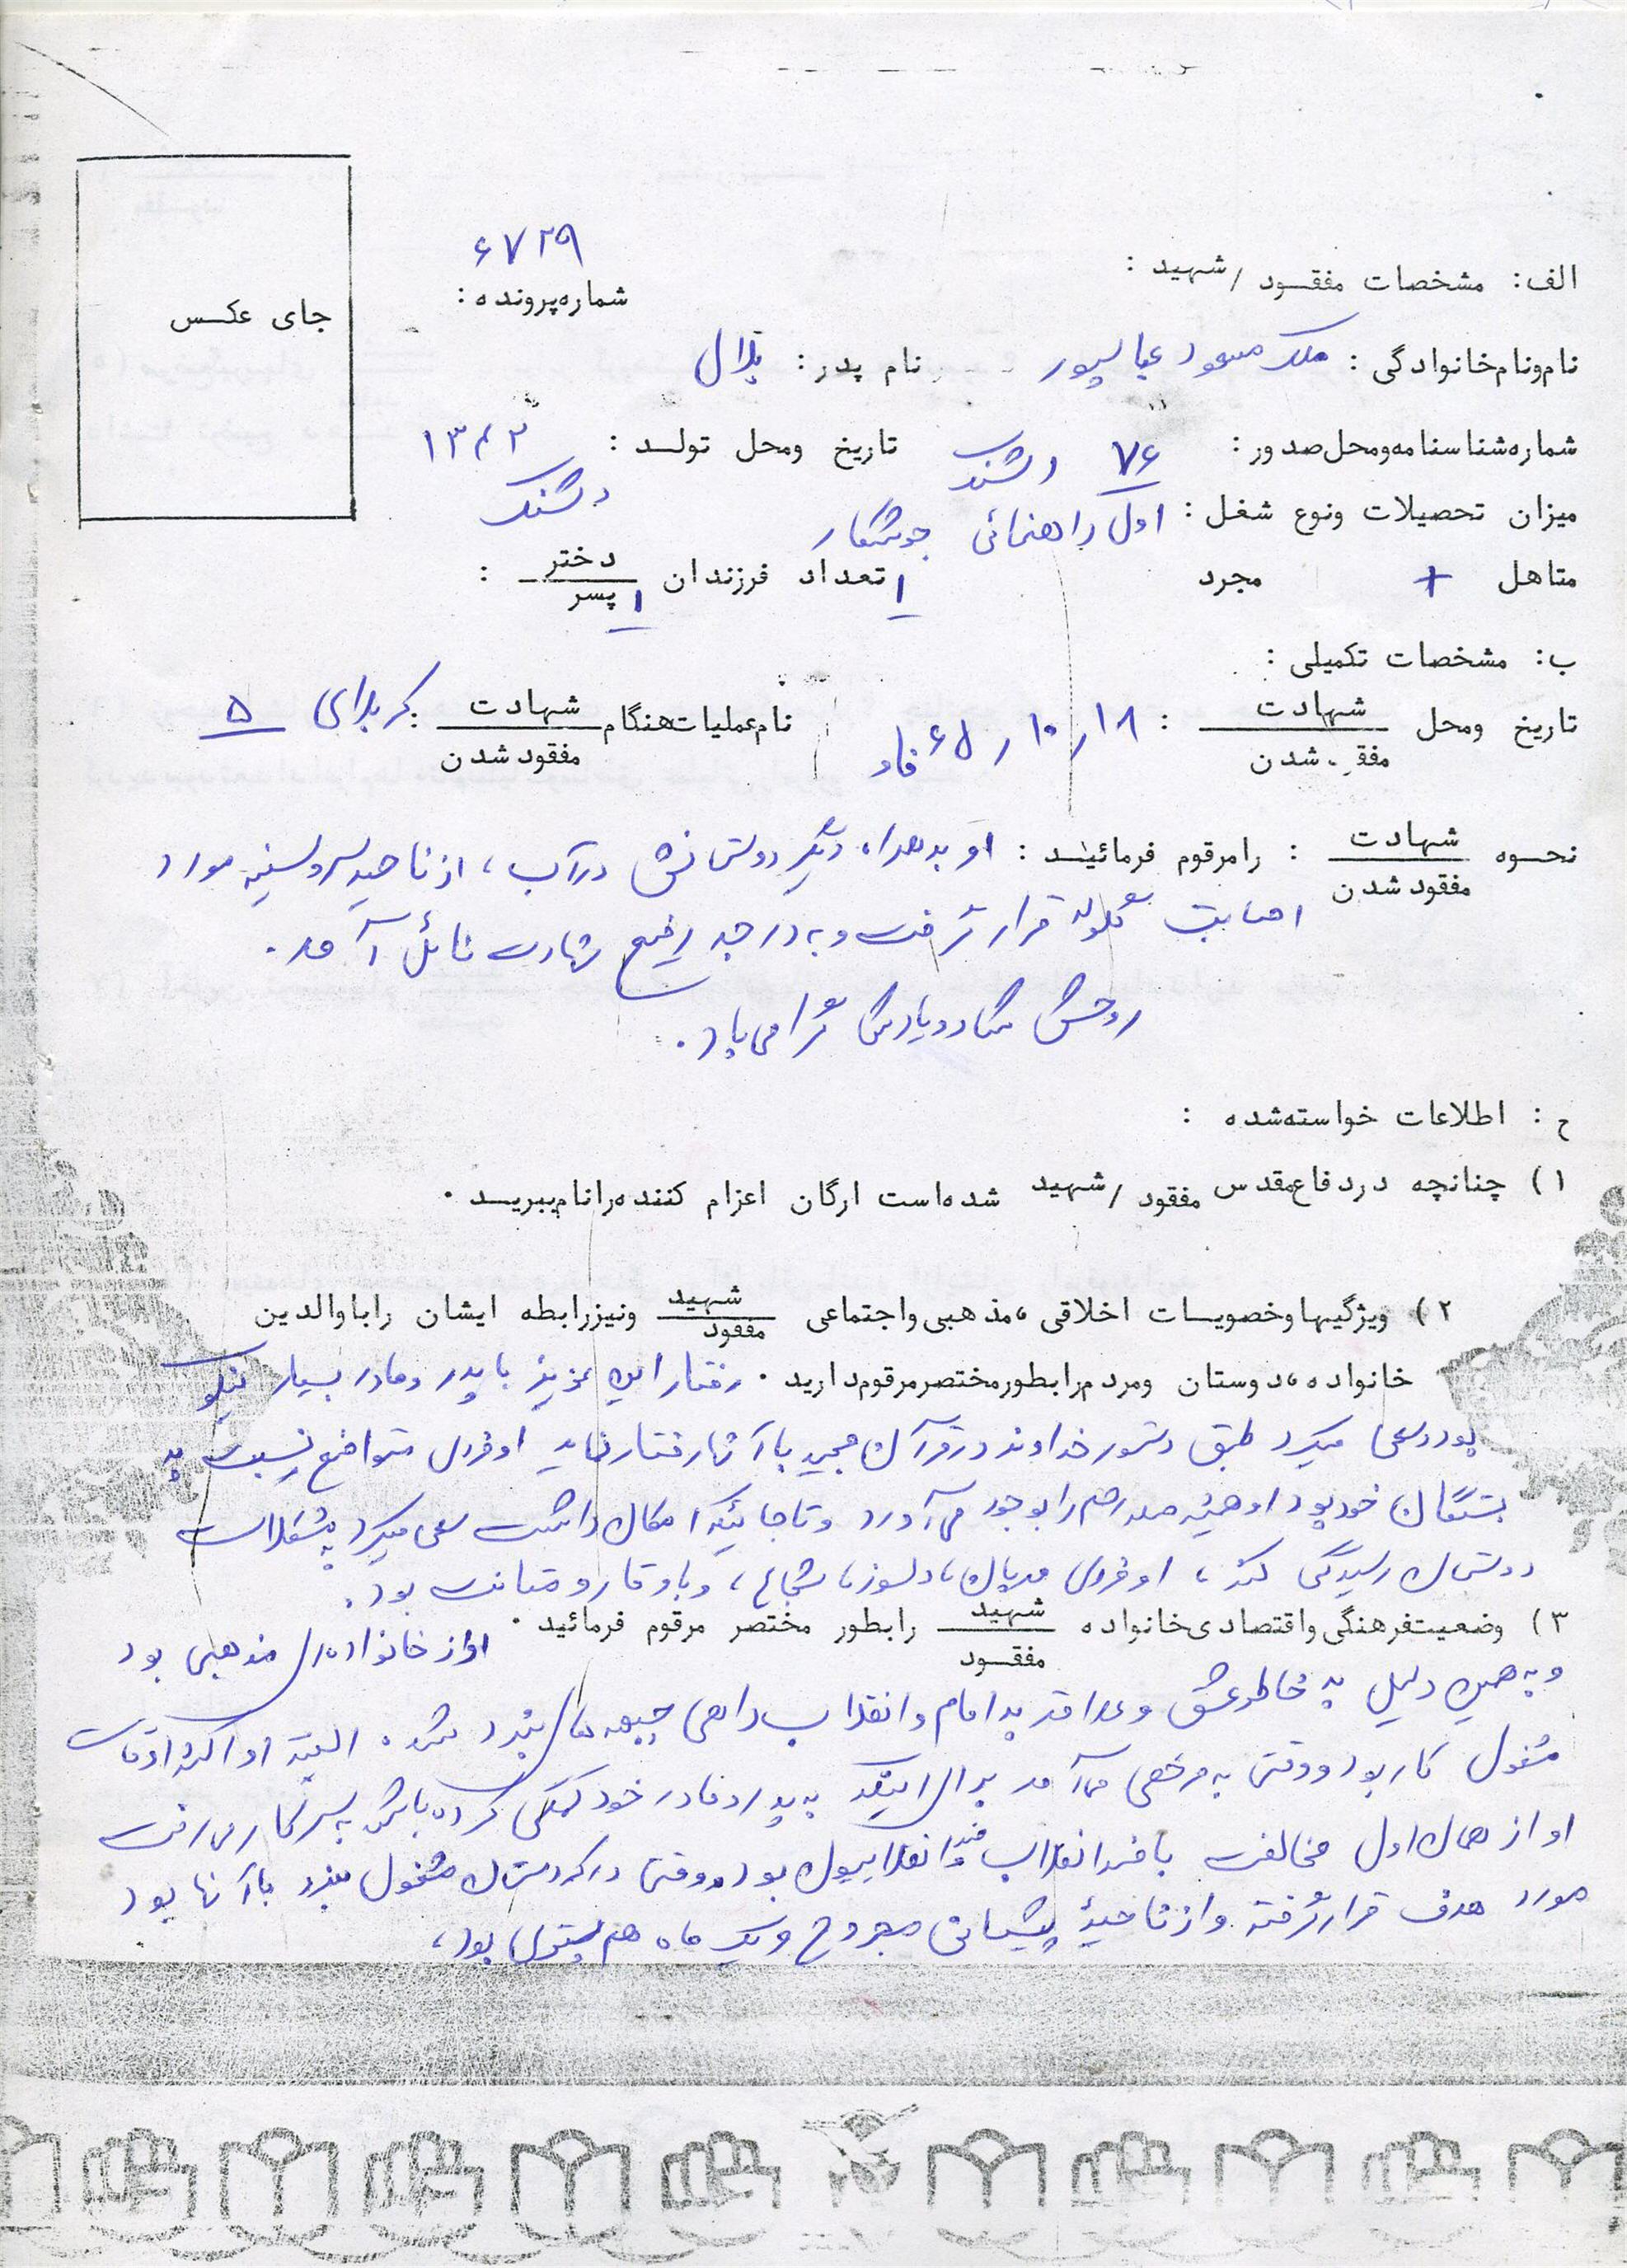 ۶۷۲۹
الف: مشخصات مفقود / شهید :
شماره پرونده :
جای عکس
نام و نام خانوادگی : ملک مسعود عباسپور نام پدر : بلال
شماره شناسنامه و محل صدور : ۷۶ تاریخ ومحل تولد : ۱۳۴۲
میزان تحصیلات ونوع شغل : اول راهنمائی جوشکار
متاهل + مجرد ۱ تعداد فرزندان دختر / پسر ۱ :
ب: مشخصات تکمیلی :
تاریخ ومحل شهادت / مفقود شدن : ۱۸ ر ۱۰ ر ۶۵ فاو نام عملیات هنگام شهادت / مفقود شدن : کربلای ۵
نحوه شهادت / مفقود شدن : را مرقوم فرمائیند : او به همراه دیگر دوستانش در آب ، از ناحیه سر و سینه مورد
اصابت گلوله قرار گرفت و به درجه رفیع شهادت نائل آمد .
روحش شاد و یادش گرامی باد .
ح : اطلاعات خواسته شده :
۱ ) چنانچه در دفاع مقدس مفقود / شهید شده است ارگان اعزام کننده را نام ببرید .
۲ ) ویژگیها وخصویسات اخلاقی ، مذهبی واجتماعی شهید / مفقود ونیز رابطه ایشان را با والدین
خانواده ، دوستان ومردم را بطور مختصر مرقوم دارید . رفتار این عزیز با پدر و مادر بسیار نیکو
بود و سعی میکرد طبق دستور خداوند در قرآن مجید با آنها رفتار نماید او فردی متواضع نسبت به
بستگان خود بود او همیشه صله رحم را بوجود می آورد و تا جائیکه امکان داشت سعی میکرد به مشکلات
دوستان رسیدگی کند ، او فردی مهربان ، دلسوز ، شجاع ، و با وقار و متانت بود .
۳ ) وضعیت فرهنگی واقتصادی خانواده شهید / مفقود را بطور مختصر مرقوم فرمائید . او از خانواده ای مذهبی بود
و به همین دلیل به خاطر عشق و علاقه به امام و انقلاب راهی جبهه های نبرد شد . البته او اکثر اوقات
مشغول کار بود و وقتی به مرخصی می آمد برای اینکه به پدر و مادر خود کمکی کرده باشد به سر کار می رفت
او از همان اول مخالفت با ضد انقلاب و ضد انقلابیون بود و وقتی در کردستان مشغول نبرد با آنها بود
مورد هدف قرار گرفته و از ناحیهٔ پیشانی مجروح و یک ماه هم بستری بود ،